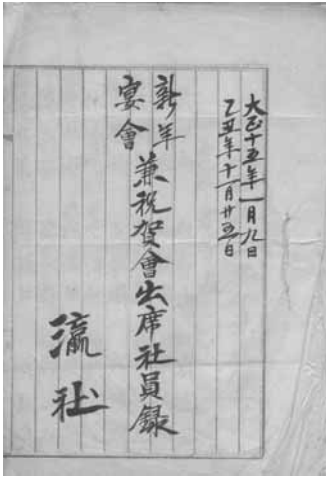 大正十五年一月九日
乙丑年十一月廿五日
新年
宴會
兼祝賀會出席社員錄
瀛社